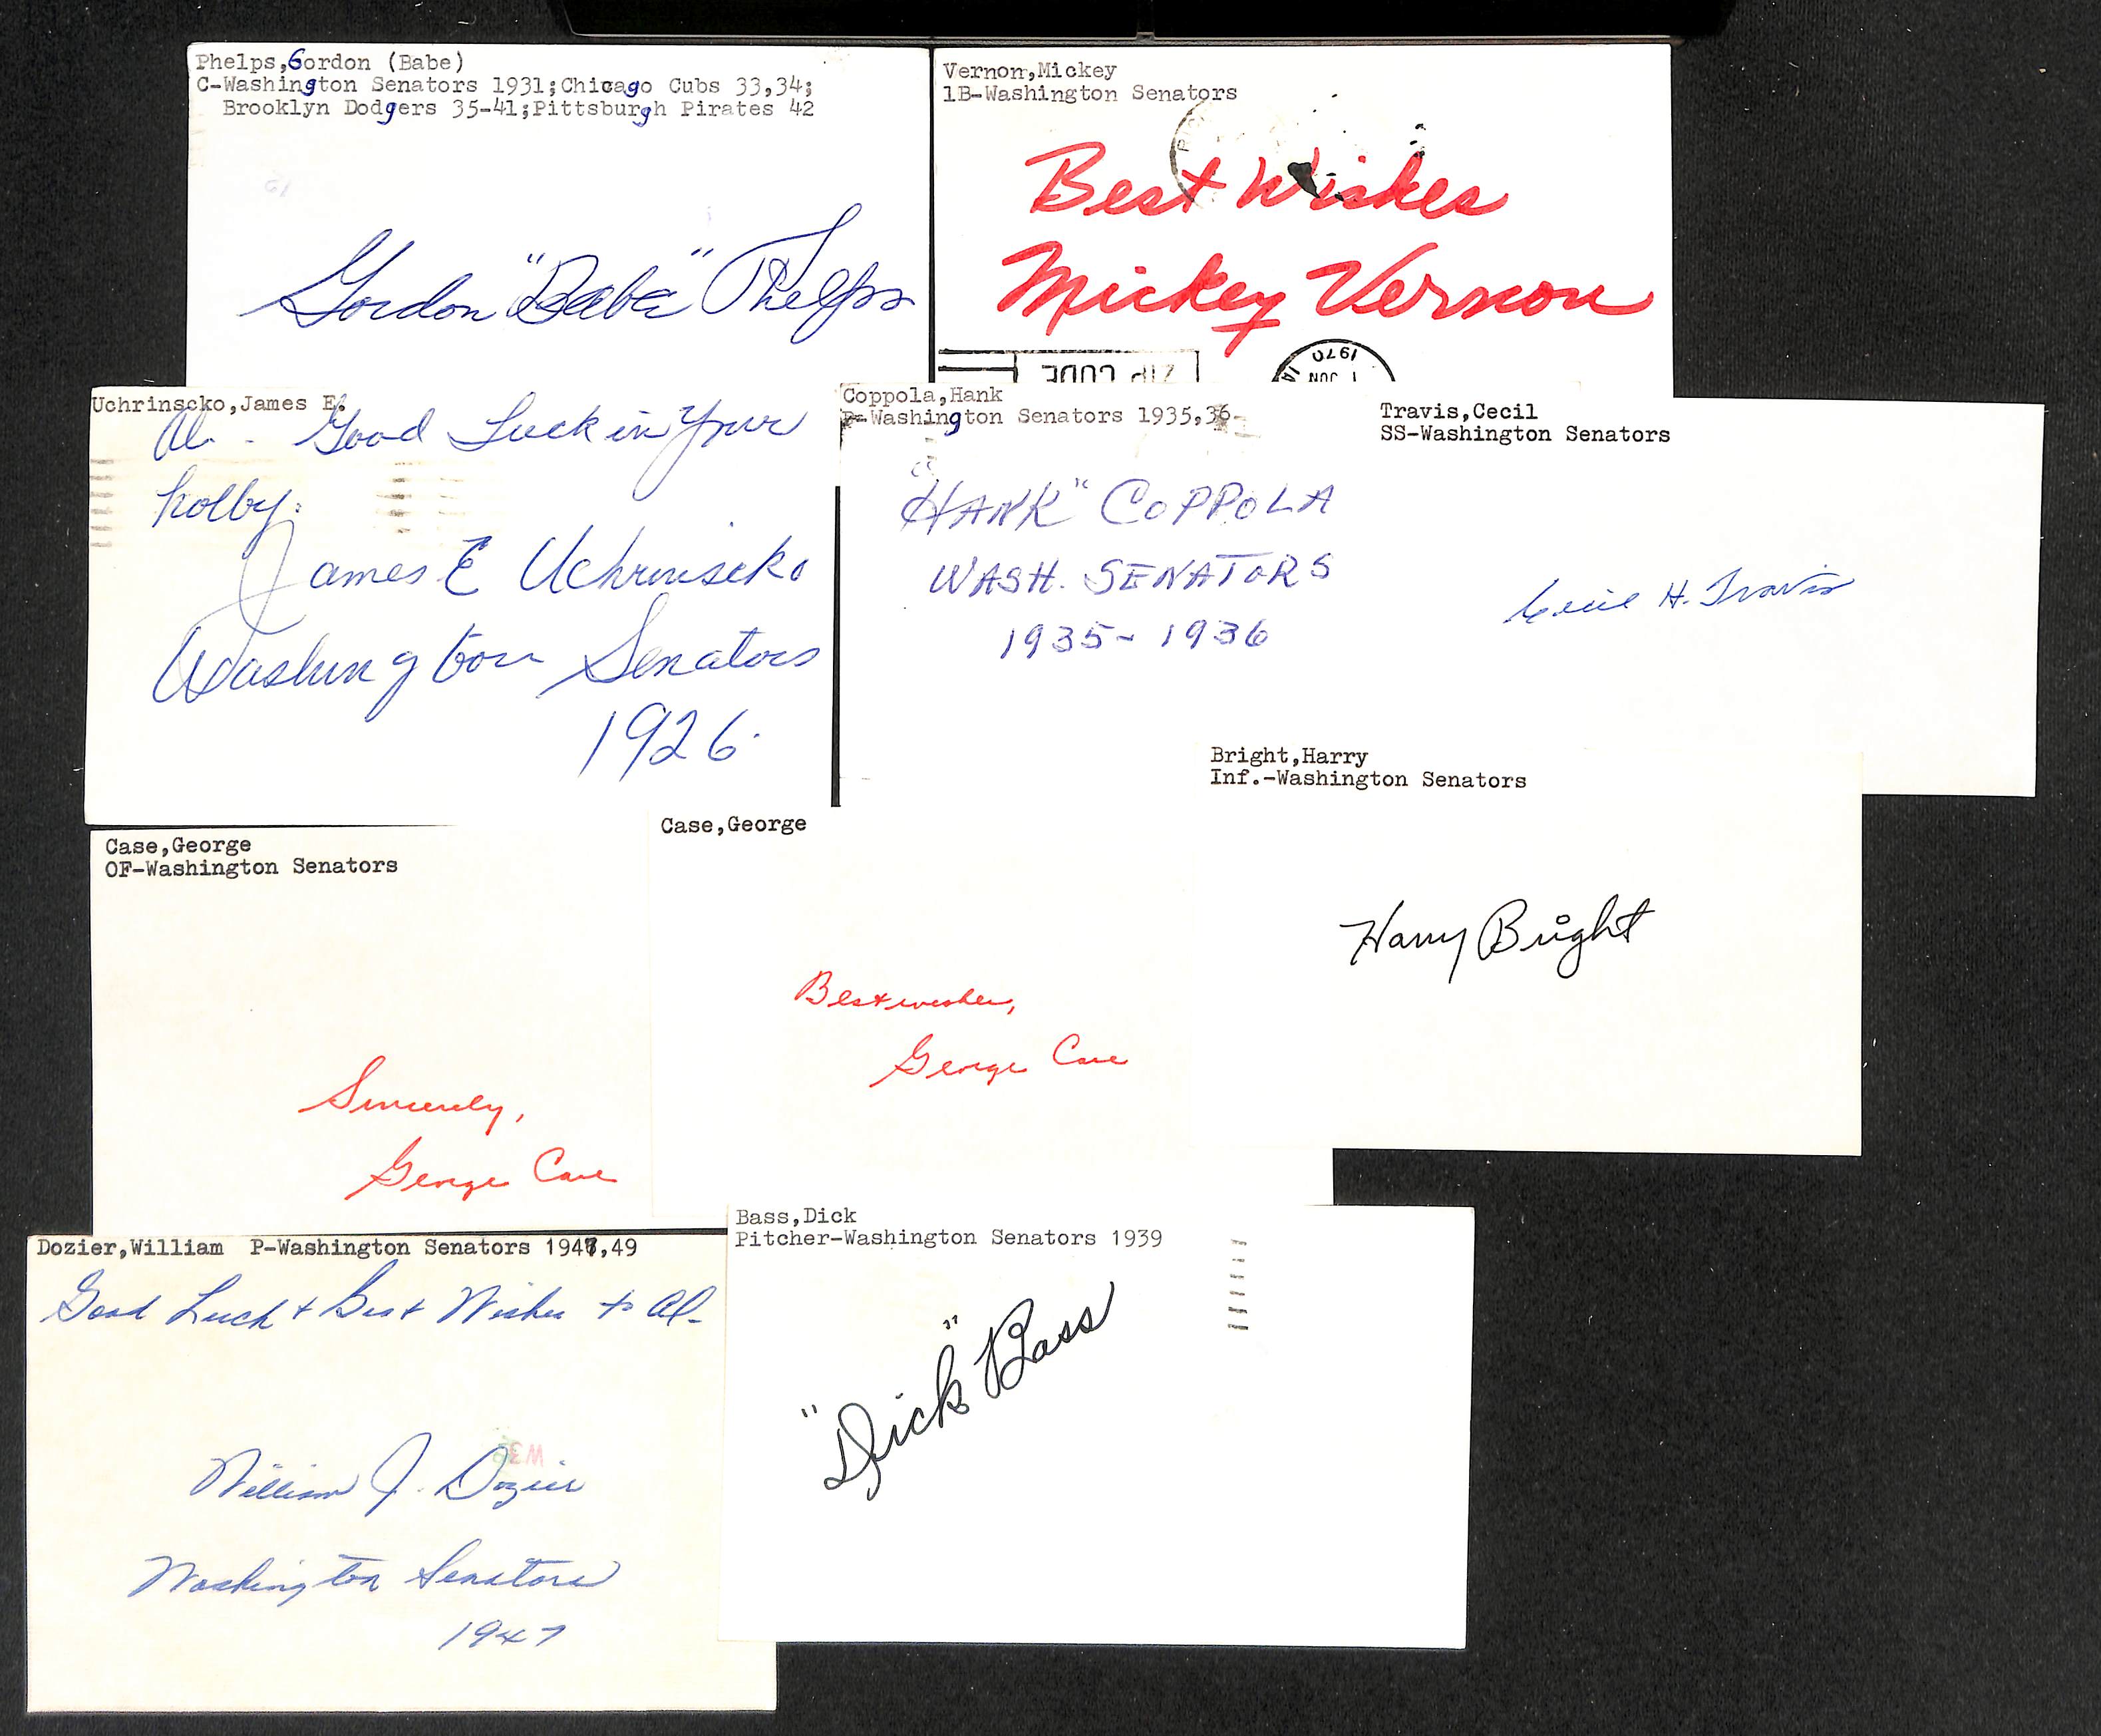 Phelps,Gordon (Babe)
C-Washington Senators 1931;Chicago Cubs 33,34;
Brooklyn Dodgers 35-41;Pittsburgh Pirates 42
Gordon "Babe" Phelps
Vernon,Mickey
1B-Washington Senators
Best Wishes
Mickey Vernon
ZIP CODE
1 JUN
1970
Uchrinscko,James E.
Al - Good Luck in Your
hobby.
James E Uchrinscko
Washington Senators
1926
Coppola,Hank
P-Washington Senators 1935,36
"HANK" COPPOLA
WASH. SENATORS
1935-1936
Travis,Cecil
SS-Washington Senators
Cecil H. Travis
Bright,Harry
Inf.-Washington Senators
Harry Bright
Case,George
OF-Washington Senators
Sincerely,
George Case
Case,George
Best wishes,
George Case
Dozier,William P-Washington Senators 1947,49
Good Luck + Best Wishes to Al-
William J. Dozier
Washington Senators
1947
Bass,Dick
Pitcher-Washington Senators 1939
"Dick" Bass